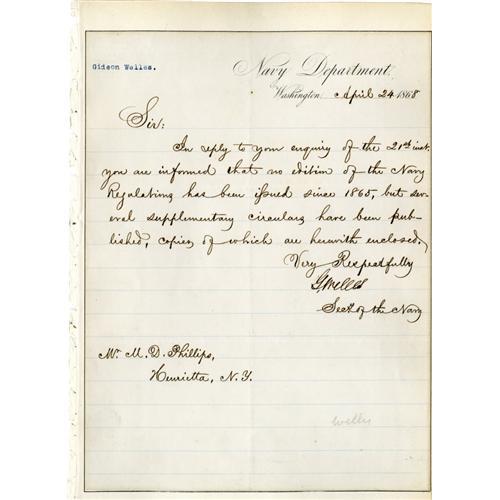 Gideon Welles.
Navy Department.
Washington April 24 1868
Sir:
In reply to your enquiry of the 21st inst.
you are informed that no edition of the Navy
Regulations has been issued since 1865, but sev-
eral supplementary circulars have been pub-
lished, copies of which are herewith enclosed.
Very Respectfully
G. Welles
Secy of the Navy
Mr. M. D. Phillips,
Henrietta, N.Y.
Welles